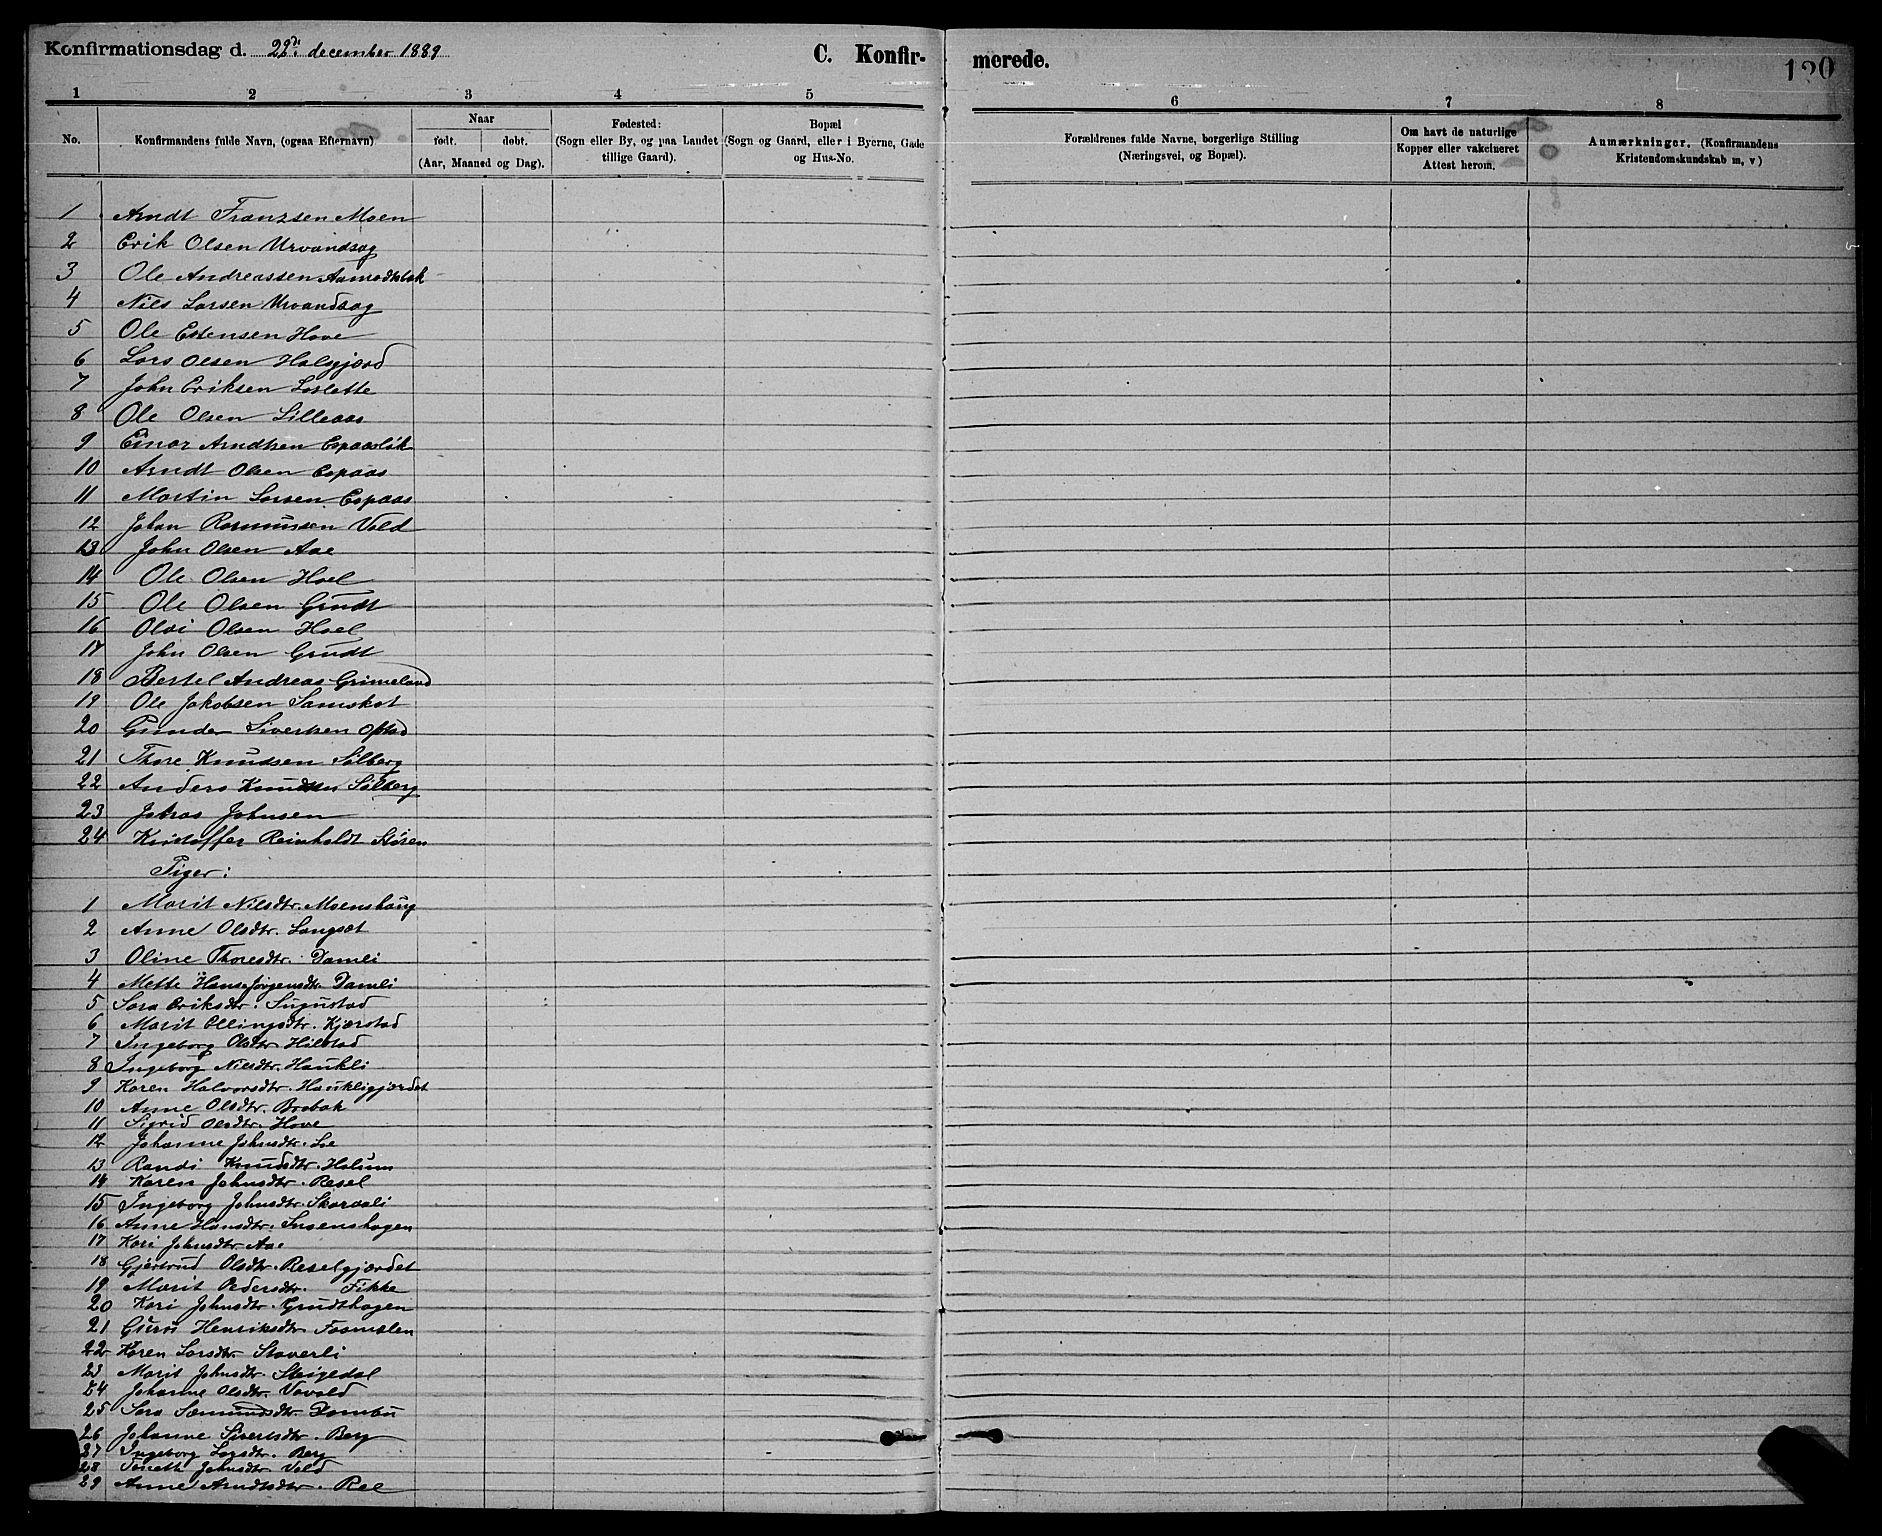 Konfirmationsdag d. 22de december 1889
C. Konfir-
merede.
120
1 2 3 4 5 6 7 8
No.
Konfirmandens fulde Navn, (ogsaa Efternavn)
Naar
født. døbt.
(Aar, Maaned og Dag).
Fødested:
(Sogn eller By, og paa Landet
tillige Gaard).
Bopæl
(Sogn og Gaard, eller i Byerne, Gade
og Hus-No.
Forældrenes fulde Navne, borgerlige Stilling
(Næringsvei, og Bopæl).
Om havt de naturlige
Kopper eller vakcineret
Attest herom.
Anmærkninger. (Konfirmandens
Kristendomskundskab m, v)
1 Arndt Franzsen Moen
2 Erik Olsen Urvandsøg
3 Ole Andreassen
4 Nils Larsen Urvandsøg
5 Ole Estensen Hove
6 Lars Olsen Halsgjærd
7 John Eriksen Løslette
8 Ole Olsen Lilleaas
9 Einar Arndtsen Espaasløk
10 Arndt Olsen Espaas
11 Martin Larsen Espaas
12 Johan Rasmussen Vold
13 John Olsen Aae
14 Ole Olsen Hoel
15 Ole Olsen Grudt
16 Olai Olsen Hoel
17 John Olsen Grudt
18 Bertel Andreas Grimeland
19 Ole Jakobsen Samskot
20 Gunder Sivertsen Opstad
21 Thore Knudsen Solberg
22 Anders Knudsen Solberg
23 Johnsen
24 Kristoffer Reinholdt Støren
Piger:
1 Marit Nilsdtr. Moenshaug
2 Anne Olsdtr. Langsæt
3 Oline Thoresdtr. Damli
4 Mette Hans Jørgensdtr. Damli
5 Sara Eriksdtr. Singustad
6 Marit Ellingsdtr. Kjærstad
7 Ingeborg Olsdtr. Hilstad
8 Ingeborg Nilsdtr. Haukli
9 Karen Halvorsdtr. Haukligjærdet
10 Anne Olsdtr. Brebak
11 Sigrid Olsdtr. Hove
12 Johanne Johnsdtr. Lie
13 Randi Knudsdtr. Halum
14 Karen Johnsdtr. Resel
15 Ingeborg Johnsdtr. Skardali
16 Anne Hansdtr. Snoenshagen
17 Kari Johnsdtr. Aae
18 Gjertrud Olsdtr. Reselgjærdet
19 Marit Pedersdtr. Fikke
20 Kari Johnsdtr. Grudthagen
21 Guru Henriksdtr. Fosmolen
22 Karen Larsdtr. Staverli
23 Marit Johnsdtr. Støgedal
24 Johanne Olsdtr. Vavold
25 Sara Sæmundsdtr. Dambu
26 Johanne Sivertsdtr. Berg
27 Ingeborg Larsdtr. Berg
28 Johnsdtr. Vold
29 Anne Arndtsdtr. Ree